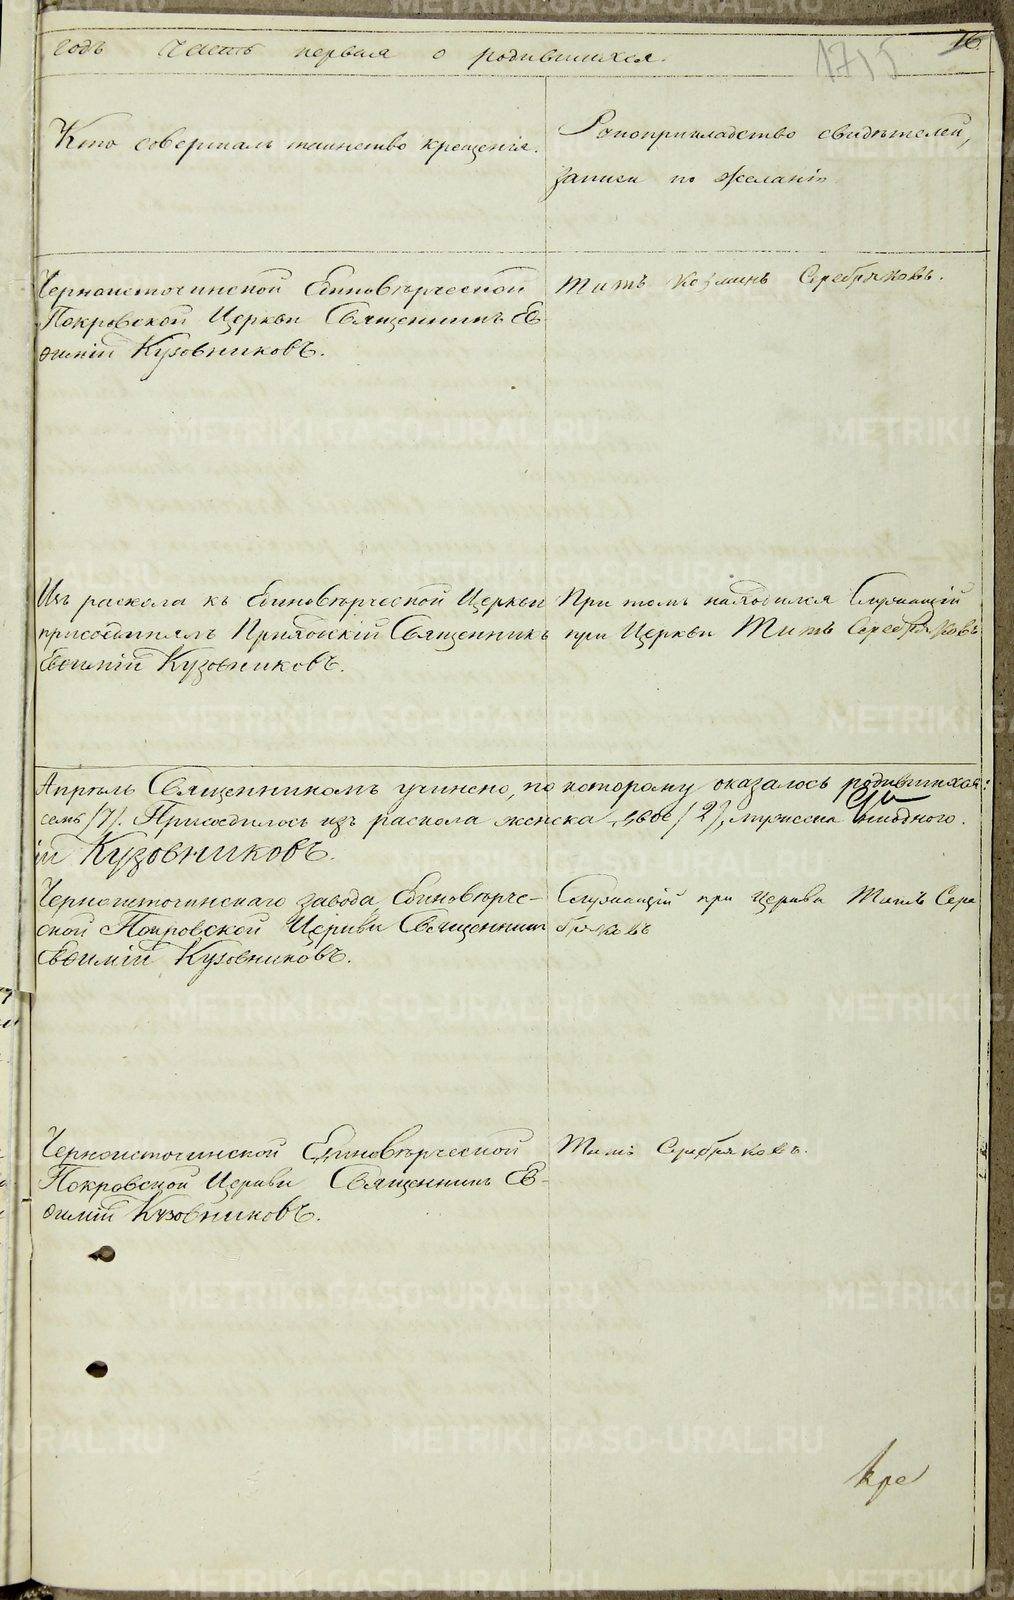 годъ Часть первая о родившихся.
16
1715
Кто совершалъ таинство крещенія.
Рукоприкладство свидѣтелей,
записи по желанію
Черноисточинской Единовѣрческой
Покровской Церкви Священникъ Ев-
ѳимій Кузовниковъ.
Титъ Козминъ Серебряковъ.
Изъ раскола къ Единовѣрческой Церкви
присоединялъ Приходскій Священникъ
Евѳимій Кузовниковъ.
При томъ находился Служащій
при Церкви Титъ Серебряковъ
Апрѣль Священникомъ учинено, по которому оказалось родившихся:
семь /7/. Присоединилось изъ раскола женска двое /2/,
ій Кузовниковъ.
Черноисточинскаго завода Единовѣрче-
ской Покровской Церкви Священникъ
Евѳимій Кузовниковъ.
Служащій при Церкви Титъ Сере
бряковъ
Черноисточинской Единовѣрческой
Покровской Церкви Священникъ Ев-
ѳимій Кузовниковъ.
Титъ Серебряковъ.
кре
METRIKI.GASO-URAL.RU